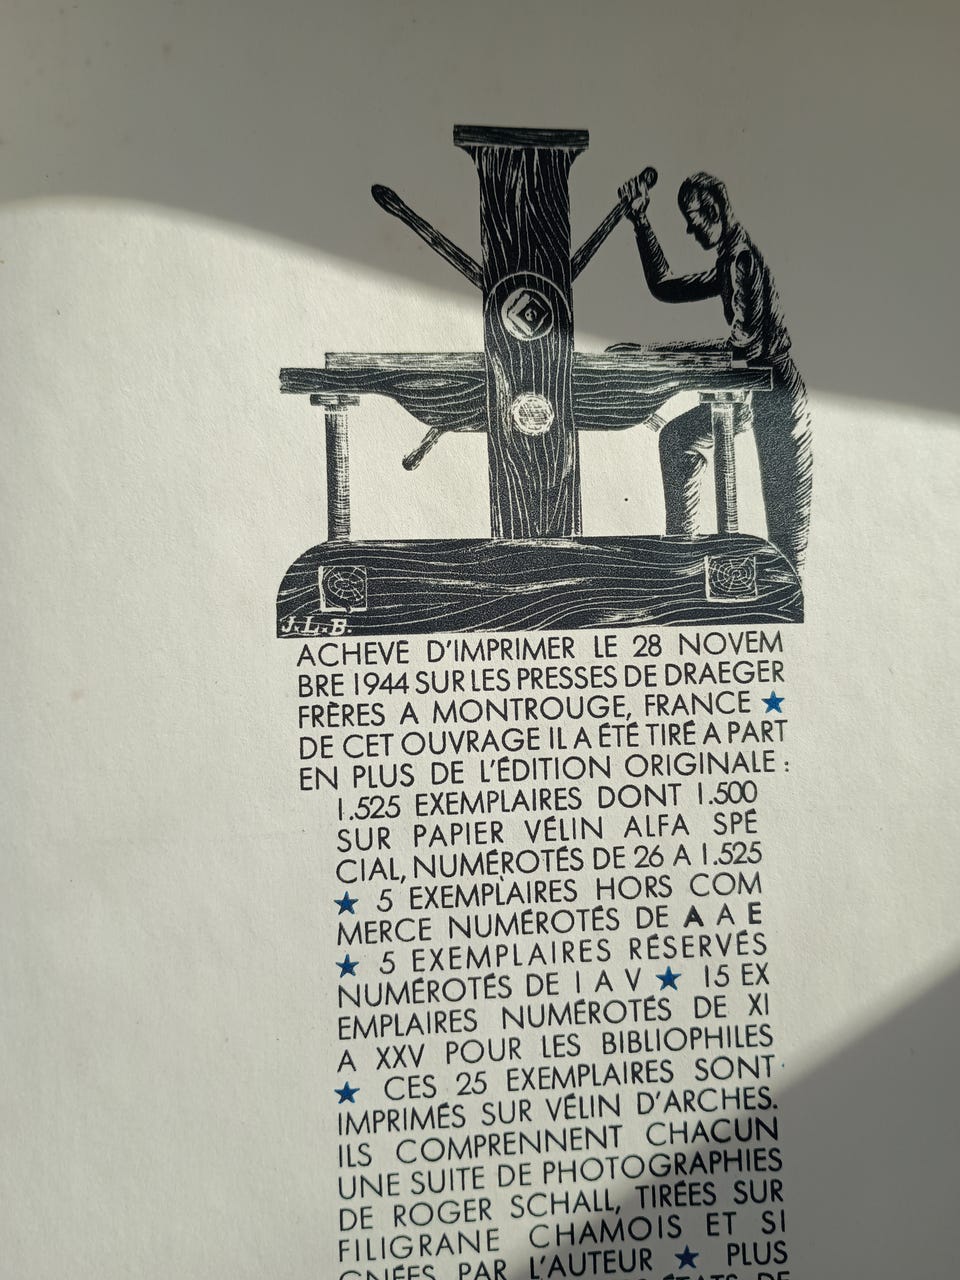 J. L. B.
ACHEVÉ D'IMPRIMER LE 28 NOVEM
BRE 1944 SUR LES PRESSES DE DRAEGER
FRÈRES A MONTROUGE, FRANCE ★
DE CET OUVRAGE IL A ÉTÉ TIRÉ A PART
EN PLUS DE L'ÉDITION ORIGINALE :
1.525 EXEMPLAIRES DONT 1.500
SUR PAPIER VÉLIN ALFA SPÉ
CIAL, NUMÉROTÉS DE 26 A 1.525
★ 5 EXEMPLAIRES HORS COM
MERCE NUMÉROTÉS DE A A E
★ 5 EXEMPLAIRES RÉSERVÉS
NUMÉROTÉS DE I A V ★ 15 EX
EMPLAIRES NUMÉROTÉS DE XI
A XXV POUR LES BIBLIOPHILES
★ CES 25 EXEMPLAIRES SONT
IMPRIMÉS SUR VÉLIN D'ARCHES.
ILS COMPRENNENT CHACUN
UNE SUITE DE PHOTOGRAPHIES
DE ROGER SCHALL, TIRÉES SUR
FILIGRANE CHAMOIS ET SI
GNÉES PAR L'AUTEUR ★ PLUS
ÉTATS DE